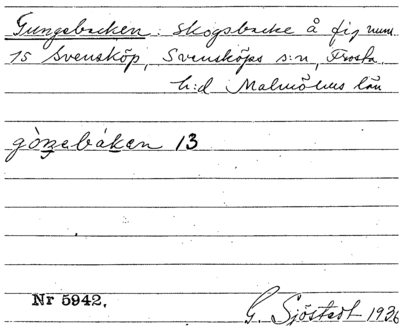 Gungebacken: Skogsbacke å fig num.
15 Svensköp, Svensköps s:n, Frosta
h:d Malmöhus län
göŋebáken 13
Nr 5942.
G. Sjöstedt 1936